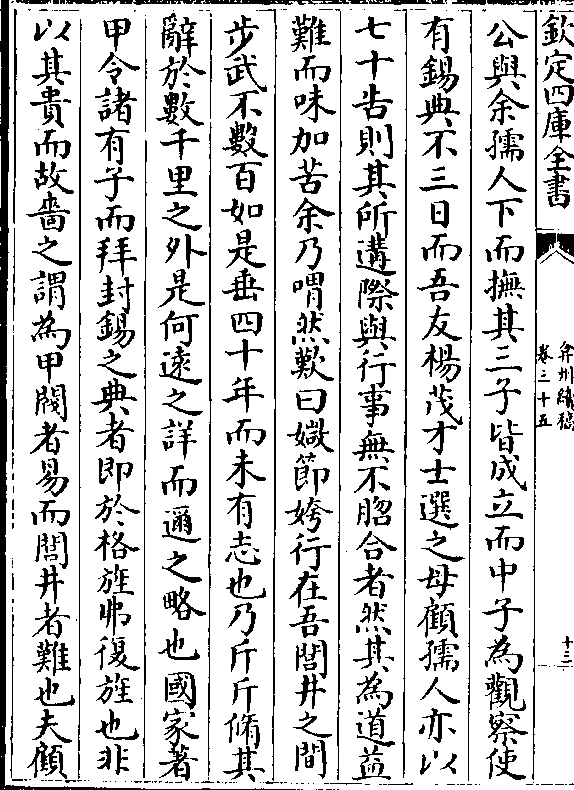 欽定四庫全書
弇州續稿
卷三十五
十三
公與余孺人下而撫其三子皆成立而中子為觀察使
有錫典不三日而吾友楊茂才士選之母顧孺人亦以
七十告則其所遘際與行事無不脗合者然其為道益
難而味加苦余乃喟然歎曰嫩節姱行在吾閭井之間
步武不數百如是垂四十年而未有志也乃斤斤脩其
辭於數千里之外是何遠之詳而邇之略也國家著
甲令諸有子而拜封錫之典者即於格旌弗復旌也非
以其貴而故嗇之謂為甲閥者易而閭井者難也夫顧